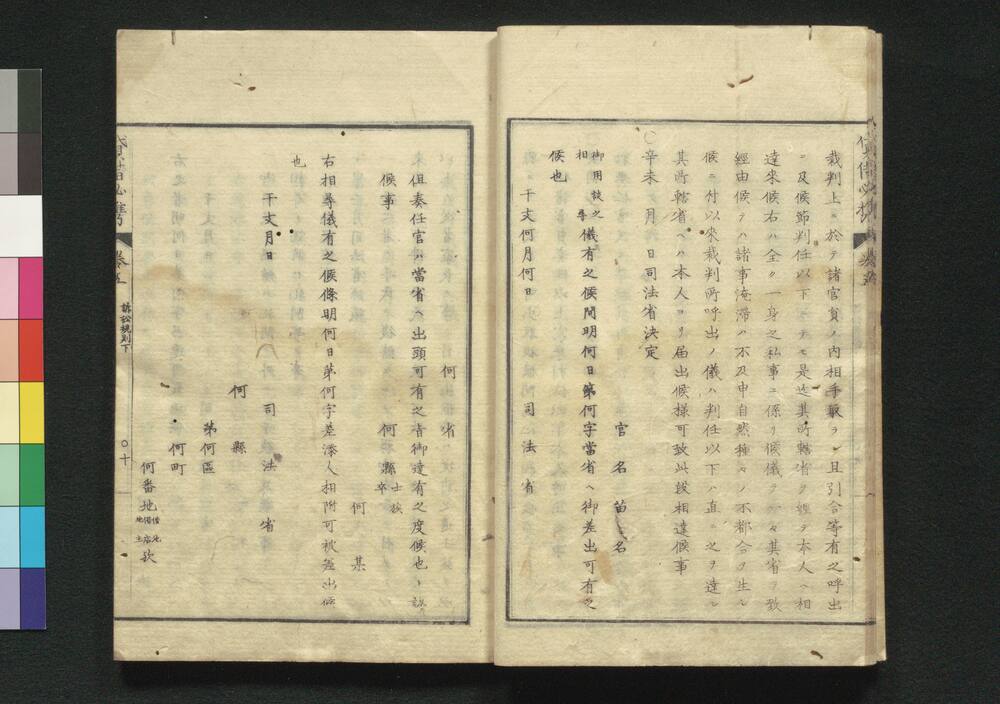 裁判上ニ於テ諸官員ノ内相手取ラレ且引合等有之呼出
ニ及候節判任以下ニテモ是迄其所轄省ヲ經テ本人ヘ相
達來候右ハ全ク一身之私事ニ係リ候儀ヲ々々其省ヲ致
經由候テハ諸事淹滯ハ不及申自然種々ノ不都合ヲ生シ
候ニ付以來裁判所呼出ノ儀ハ判任以下ハ直ニ之ヲ達シ
其所轄省ヘハ本人ヨリ届出候様可致此段相達候事
○辛未 月 日司法省決定
官名苗名
御用談之
相尋
儀有之候間明何日第何字當省ヘ御差出可有之
候也
干支何月何日 司法省
何省
來
但奏任官ハ當省ヘ出頭可有之旨御達有之度候也ト認
候事
何縣士族卒
何某
右相尋儀有之候條明何日第何字差添人相附可被差出候
也
干支月日 司法省
何縣
第何區
何町
何番地
借地
借店
地主
欤
貸借必携
卷五
訴訟規則下
○十